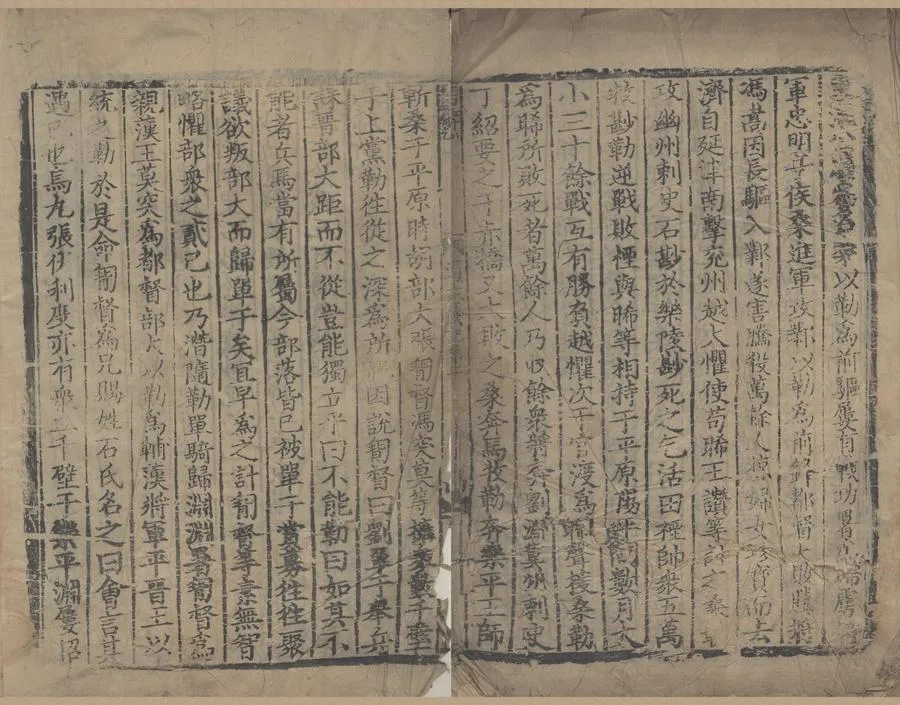 以勒為前驅屢有戰功署為掃虜
軍忠明亭侯桑進軍攻鄴以勒為前鋒都督大敗騰將
馮嵩因長驅入鄴遂害騰殺萬餘人掠婦女珍寶而去
濟自延津南擊兖州越大懼使苟晞王讚等討之桑
攻幽州刺史石尠於樂陵尠死之乞活田禋帥衆五萬
救尠勒逆戰敗禋與晞等相持于平原陽平間數月大
小三十餘戰互有勝負越懼次于官渡為晞聲援桑勒
為晞所敗死者萬餘人乃收餘衆將奔劉淵冀州刺史
丁紹要之于赤橋又大敗之桑奔馬牧勒奔樂平王師
斬桑于平原時胡部大張㔨督馮突莫等擁衆數千壁
于上黨勒往從之深為所昵因說㔨督曰劉單于舉兵
誅晉部大距而不從豈能獨立乎曰不能勒曰如其不
能者兵馬當有所屬今部落皆已被單于賞募往往聚
議欲叛部大而歸單于矣宜早為之計㔨督等素無智
略懼部衆之貳己也乃潛隨勒單騎歸淵淵署㔨督為
親漢王莫突為都督部大以勒為輔漢將軍平晉王以
統之勒於是命㔨督為兄賜姓石氏名之曰會言其
遇己也烏丸張伏利度亦有衆二千壁于樂平淵屢招